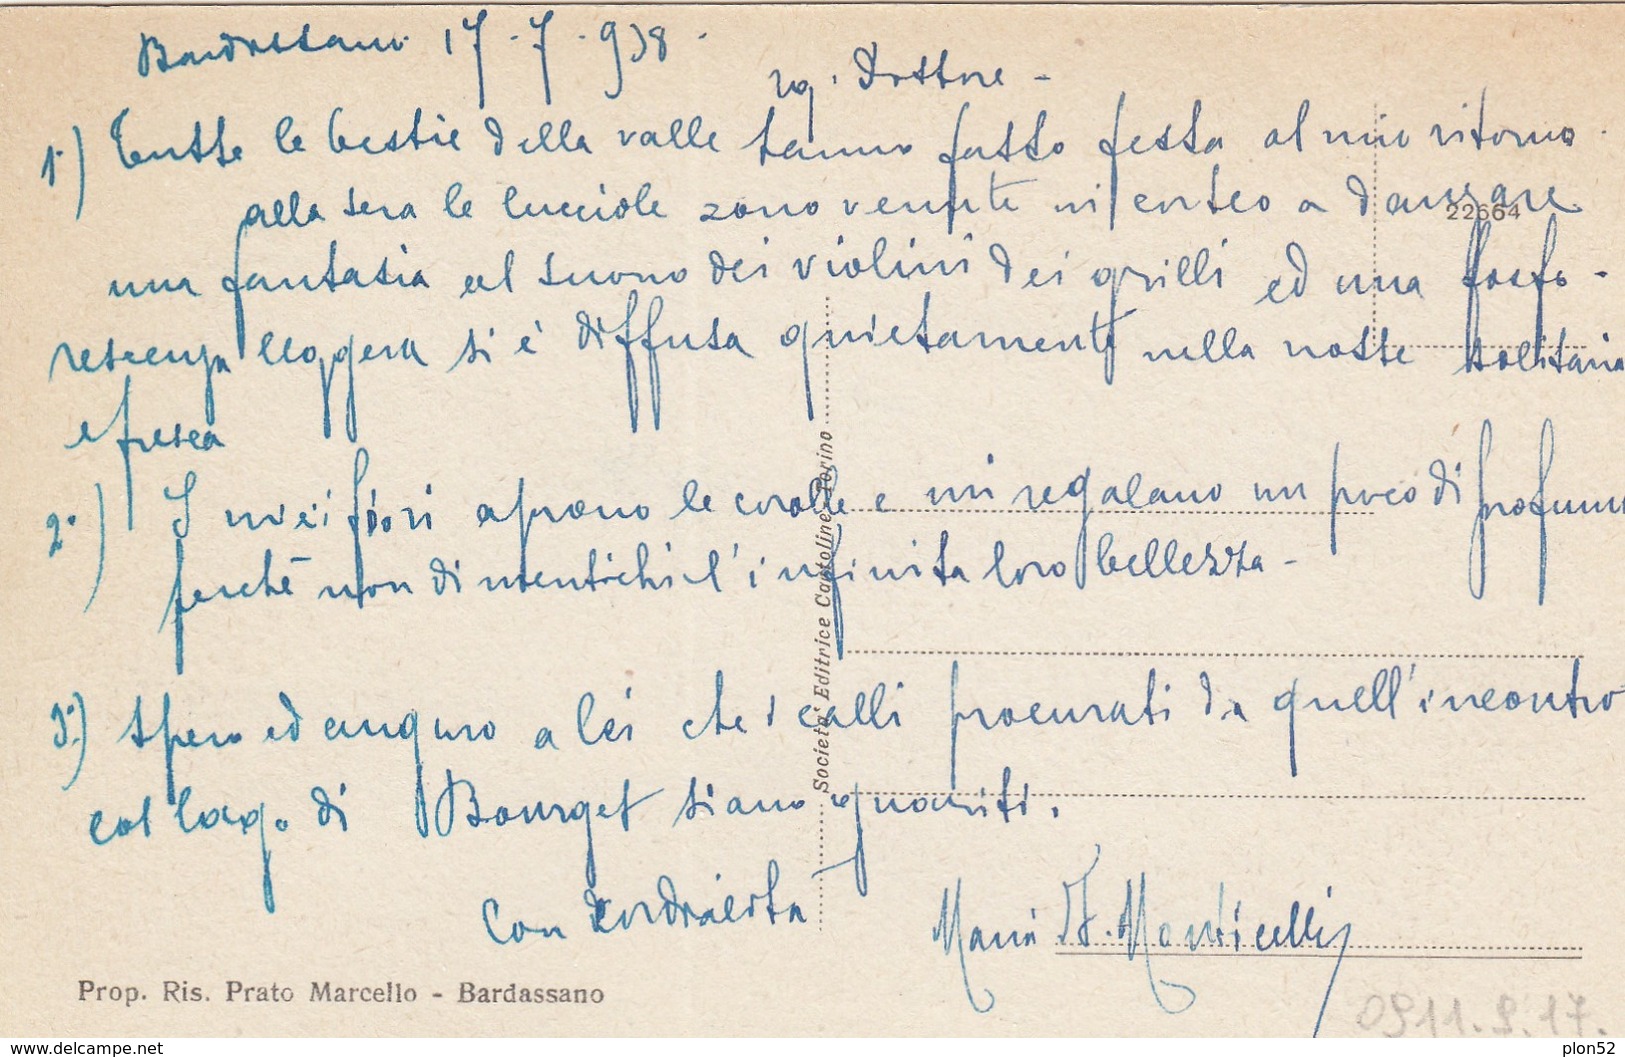 Bardassano 17.7.938.
sig. Dottore -
1°) Tutte le bestie della valle hanno fatto festa al mio ritorno.
alla sera le lucciole sono venute in corteo a danzare
22664
una fantasia al suono dei violini dei grilli ed una fosfo-
rescenza leggera si è diffusa quietamente nella notte solitaria
e fresca
2°) I miei fiori aprono le corolle e mi regalano un poco di profumo
perché non dimentichi l'infinita loro bellezza -
3°) Spero ed auguro a lei che i calli procurati da quell'incontro
col lago di Bourget siano guariti.
Con cordialità
Maria F. Monticelli
Società Editrice Cartoline - Torino
Prop. Ris. Prato Marcello - Bardassano
0911.9.17.
delcampe.net
plon52